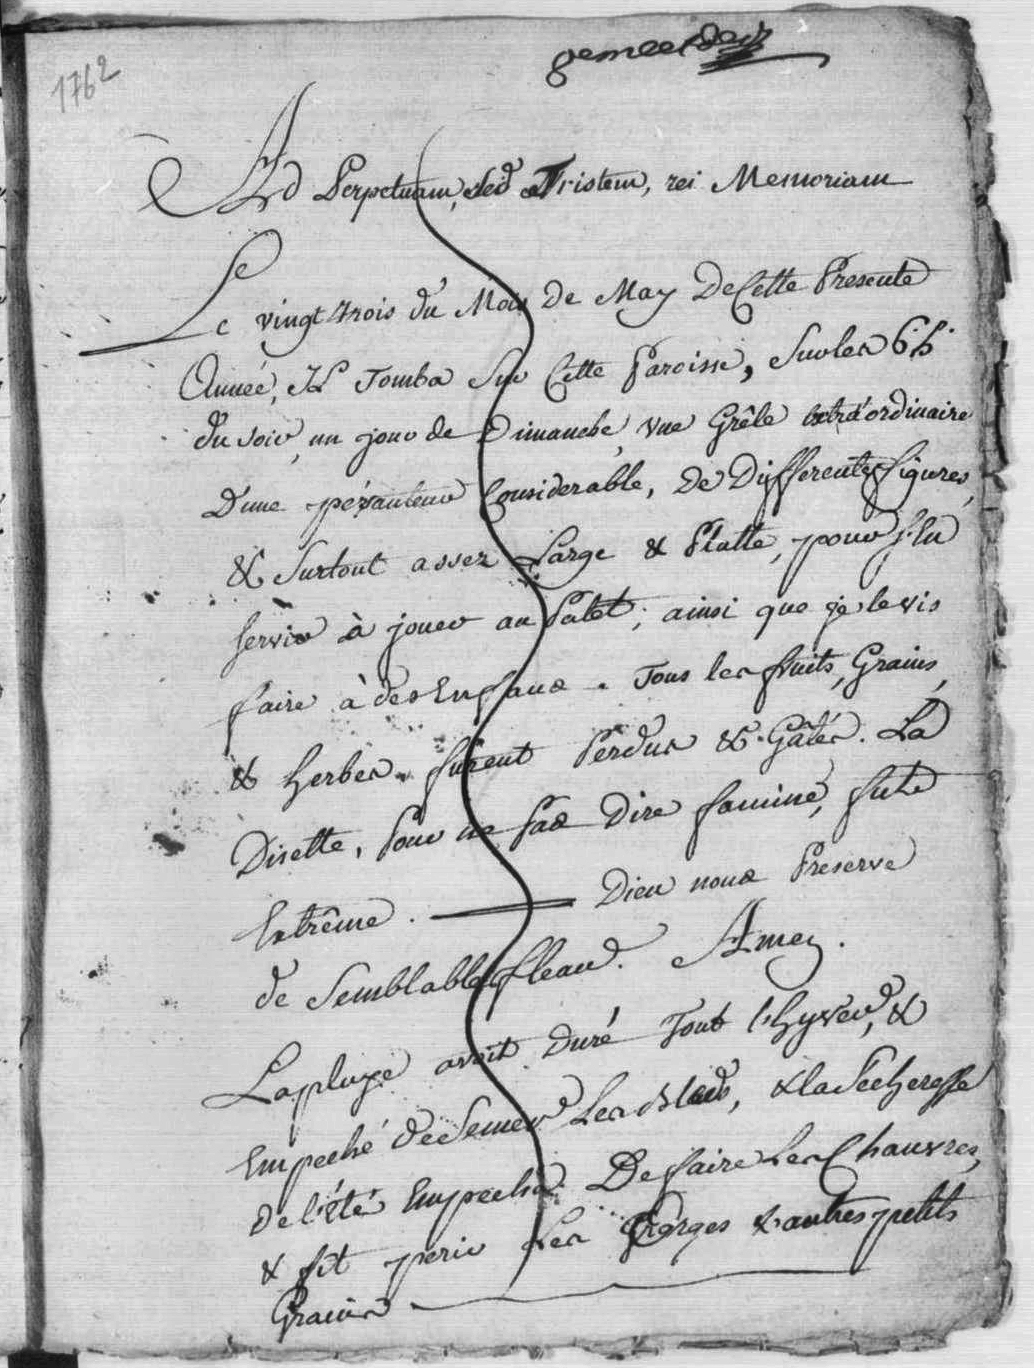 1762
Ad Perpetuam, sed Tristem, rei Memoriam
Le vingt trois du Mois de May De Cette Presente
Année, Il Tomba Sur Cette Paroisse, Sur les 6 h.
du soir, un jour de Dimanche, une Grêle extraórdinaire
D'une pésanteur Considerable, De Differentes figures,
& Surtout assez Large & Platte, pour être
servir à jouer au Palet; ainsi que je le vis
faire à des Enfans. Tous les fruits, Grains,
& herbes furent Perdus & Gâtés. La
Disette, Pour ne pas Dire famine, fut
Extrême. Dieu nous Preserve
de Semblables fleaux. Amen.
La pluye avoit Duré Tout l'hyver, &
Empeché de Semer Les Bleds, & la Secheresse
de l'été Empecha De faire Les Chanvres,
& fit perir Les Orges & autres petits
Grains